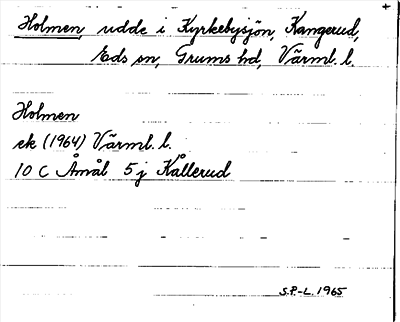 Holmen, udde i Kyrkebysjön, Kangerud,
Eds sn, Grums hd, Värml. l.
Holmen
ek (1964) Värml. l.
10 C Åmål 5 j Kållerud
S.P.-L. 1965